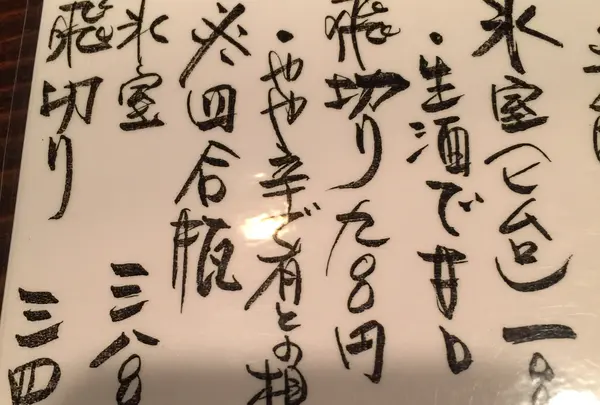 氷室(一合)一〇8
・生酒で甘口
飛切り九〇〇円
・やや辛で肴との相
冬四合瓶
氷室 三八〇
飛切り 三四